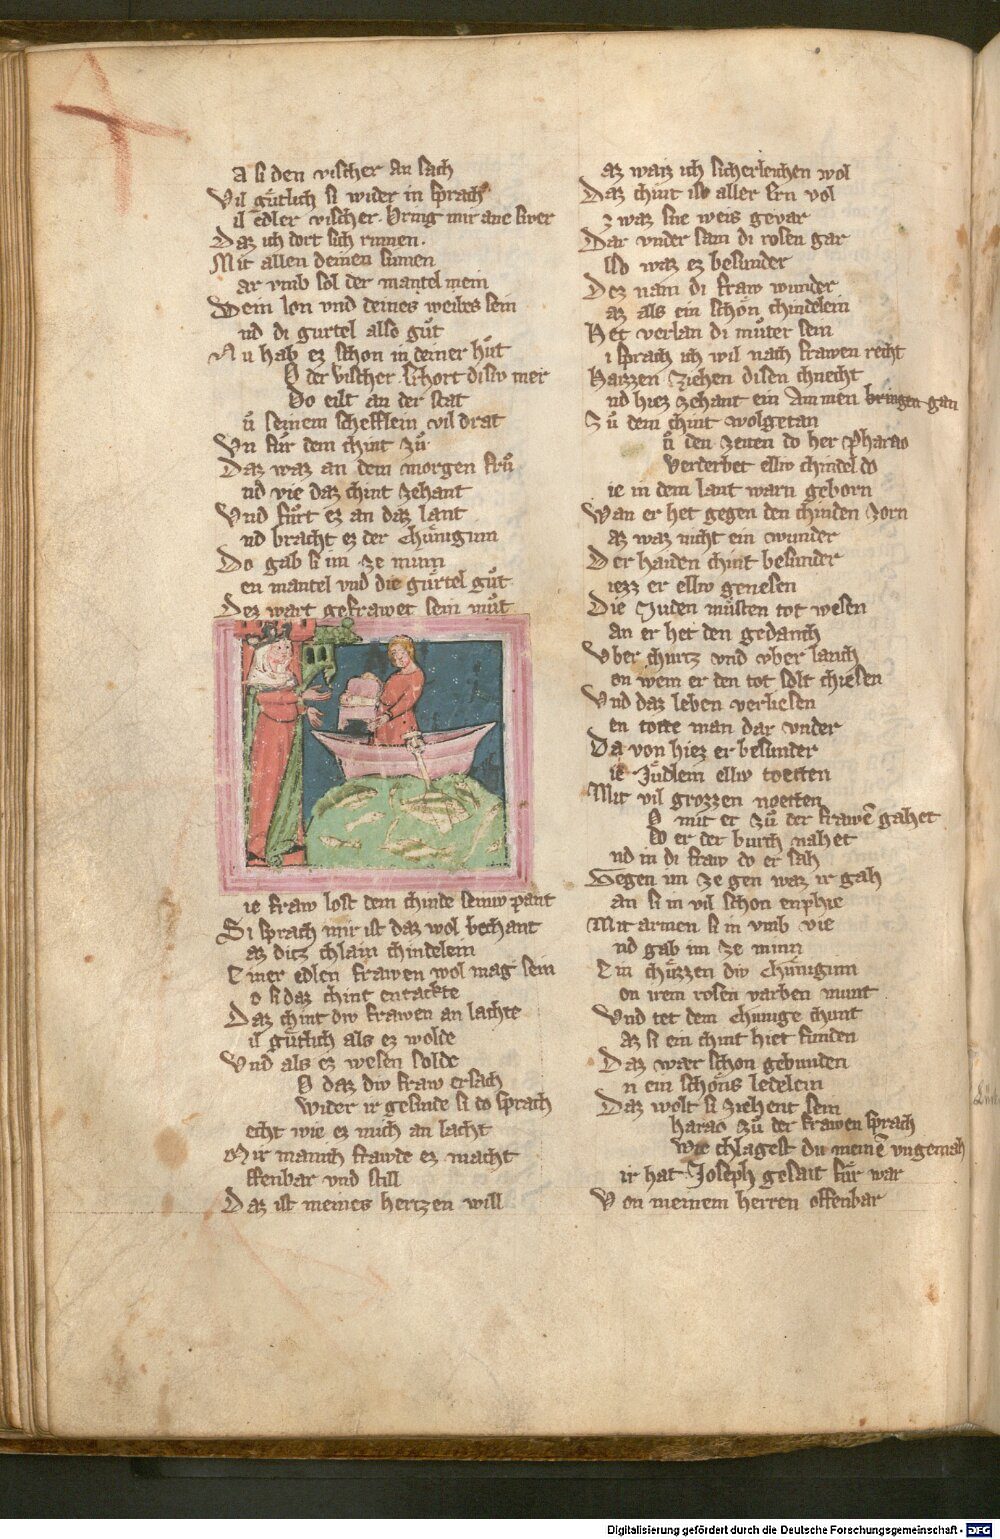 a si den vischer an sach
Vil guͤtlich si wider in sprach
il edler vischer. Bring mir ane swer
Daz ich dort sich rinnen.
Mit allen deinen sinnen
ar vmb sol der mantel mein
Dein lon vnd deines weibes sein
nd di gurtel also guͦt
Nu hab ez schon in deiner huͦt
O der vischer. hort disiv mer
Do eilt an der stat
uͦ seinem schefflein vil drat
Vn fuͦr dem chint zuͦ
Daz waz an dem morgen fruͦ
nd vie daz chint zehant
Vnd fuͦrt ez an daz lant
nd bracht ez der chuͤniginn
Do gab si im ze minn
en mantel vnd die guͤrtel guͦt
Dez wart gefrawet sein muͦt
ie fraw lost dem chinde seiniv pant
Si sprach mir ist daz wol bechant
az ditz chlain chindelein
Einer edlen frawen wol mag sein
o si daz chint entackte
Daz chint div frawen an lachte
il guͤtlich als ez wolde
Vnd als ez wesen solde
O daz div fraw ersach
Wider ir gesinde si do sprach
echt wie ez mich an lacht
Mir manich frawde ez macht
ffenbar vnd still
Daz ist meines hertzen will
az waiz ich sicherleichen wol
Daz chint ist aller ern vol
z waz sne weis gevar
Dar vnder sam di rosen gar
lso waz ez besunder
Dez nam di fraw wunder
az als ein schoͤn chindelein
Het verlan di muͦter sein
i sprach ich wil nach frawen recht
Haizzen ziehen disen chnecht
nd hiez zehant ein Ammen bringen gan
Zuͦ dem chint wolgetan
uͦ den zeiten do her Pharao
Verderbet elliv chindel do
ie in dem lant warn geborn
Wan er het gegen den chinden zorn
az waz nicht ein wunder
Der haiden chint besunder
iezz er elliv genesen
Die Juden muͤsten tot wesen
an er het den gedanch
Vber churtz vnd vber lanch
on wem er den tot solt chiesen
Vnd daz leben verliesen
en totte man dar vnder
Da von hiez er besunder
ie Juͤdlein elliv toetten
Mit vil grozzen noetten
O mit er zuͦ der frawē gahet
Do er der burch nahet
nd in di fraw do er sah
Gegen im ze gen waz ir gah
an si in vil schon enphie
Mit armen si in vmb vie
nd gab im ze minn
Ein chuͤzzen div chuͤniginn
on irem rosen varben munt
Vnd tet dem chunige chunt
az si ein chint hiet funden
Daz wær schon gebunden
n ein schoͤns ledelein
Daz wolt si ziehent sein
harao zuͦ der frawen sprach
Wie chlagest du meinē vngemah
ir hat Joseph gesait fuͤr war
Von meinem herren offenbar
Digitalisierung gefördert durch die Deutsche Forschungsgemeinschaft - DFG